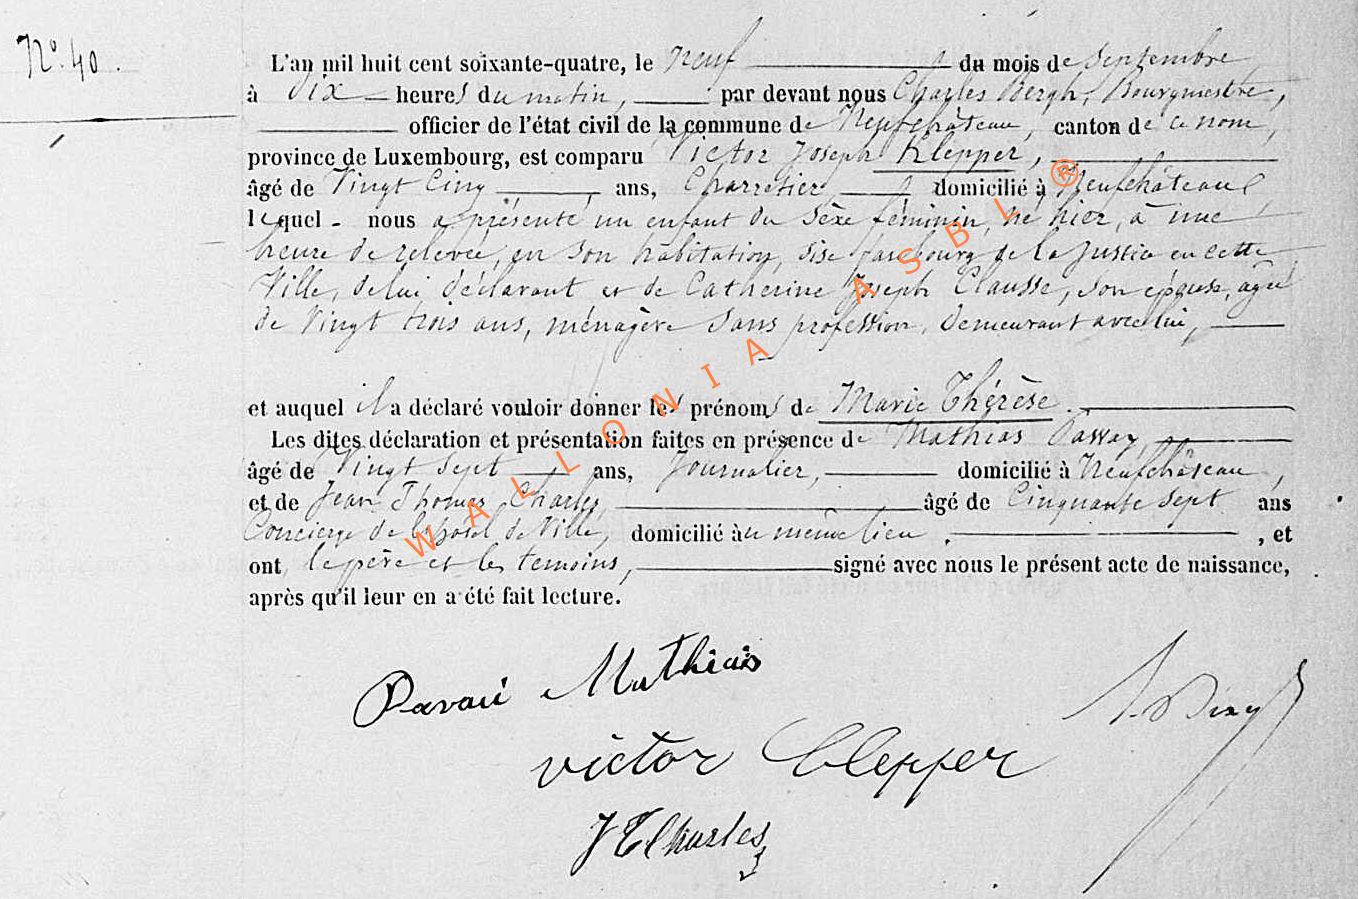 N° 40.
L'an mil huit cent soixante-quatre, le neuf du mois de Septembre
à Dix heures du matin, par devant nous Charles Bergh, Bourgmestre,
officier de l'état civil de la commune de Neufchâteau, canton de ce nom,
province de Luxembourg, est comparu Victor Joseph Klepper,
âgé de Vingt Cinq ans, Charretier domicilié à Neufchâteau,
lequel nous a présenté un enfant du Sèxe féminin, né hier, à une
heure de relevée, en son habitation, sise faubourg de la Justice en cette
Ville, de lui déclarant et de Catherine Joseph Clausse, son épouse, agée
de Vingt trois ans, ménagère Sans profession, demeurant avec lui,
et auquel il a déclaré vouloir donner les prénoms de Marie Thérèse.
Les dites déclaration et présentation faites en présence de Mathias
âgé de Vingt Sept ans, Journalier, domicilié à Neufchâteau,
et de Jean Thomas Charles, âgé de Cinquante Sept ans
Concierge de l'hotel de Ville, domicilié au même lieu, et
ont le père et les temoins, signé avec nous le présent acte de naissance,
après qu'il leur en a été fait lecture.
Mathias
victor Clepper
J T Charles
WALLONIA ASBL ®